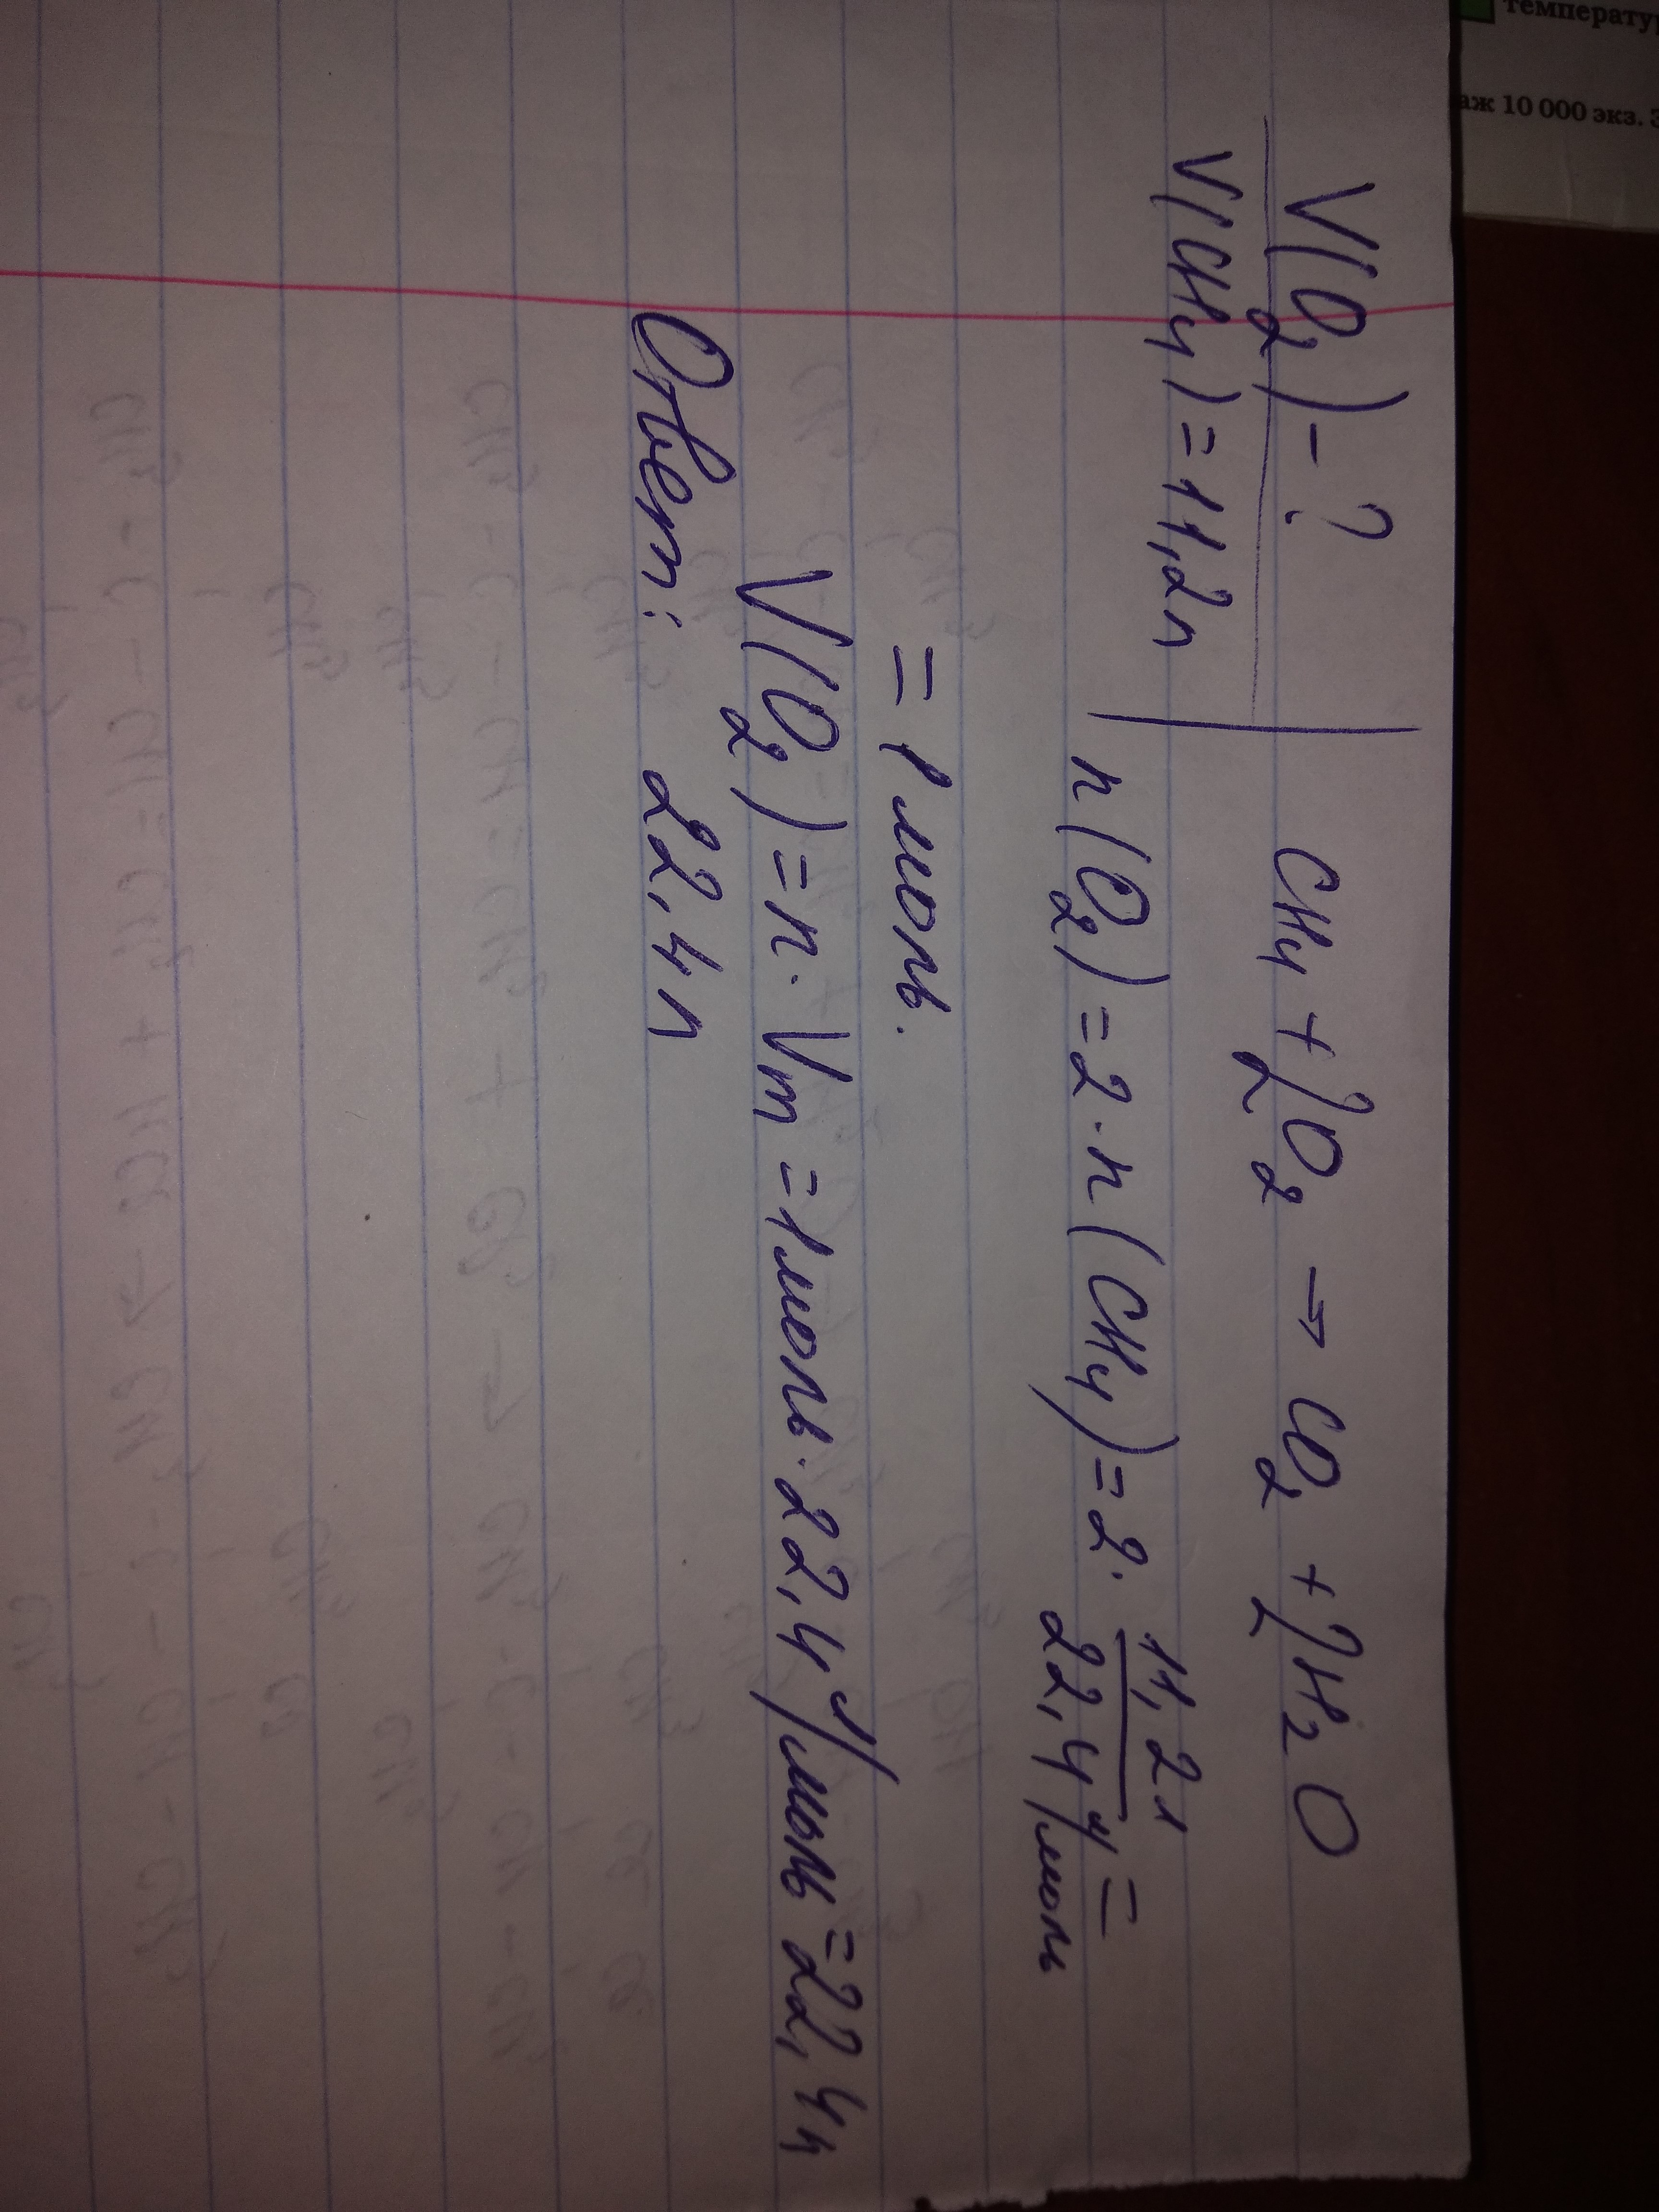 температу
аж 10 000 экз. З
V(O2) - ?
V(CH4) = 11,2л
CH4 + 2O2 → CO2 + 2H2O
n(O2) = 2 · n(CH4) = 2 · 11,2л / 22,4 л/моль =
= 1 моль.
V(O2) = n · Vm = 1моль · 22,4 л/моль = 22,4л
Ответ: 22,4л